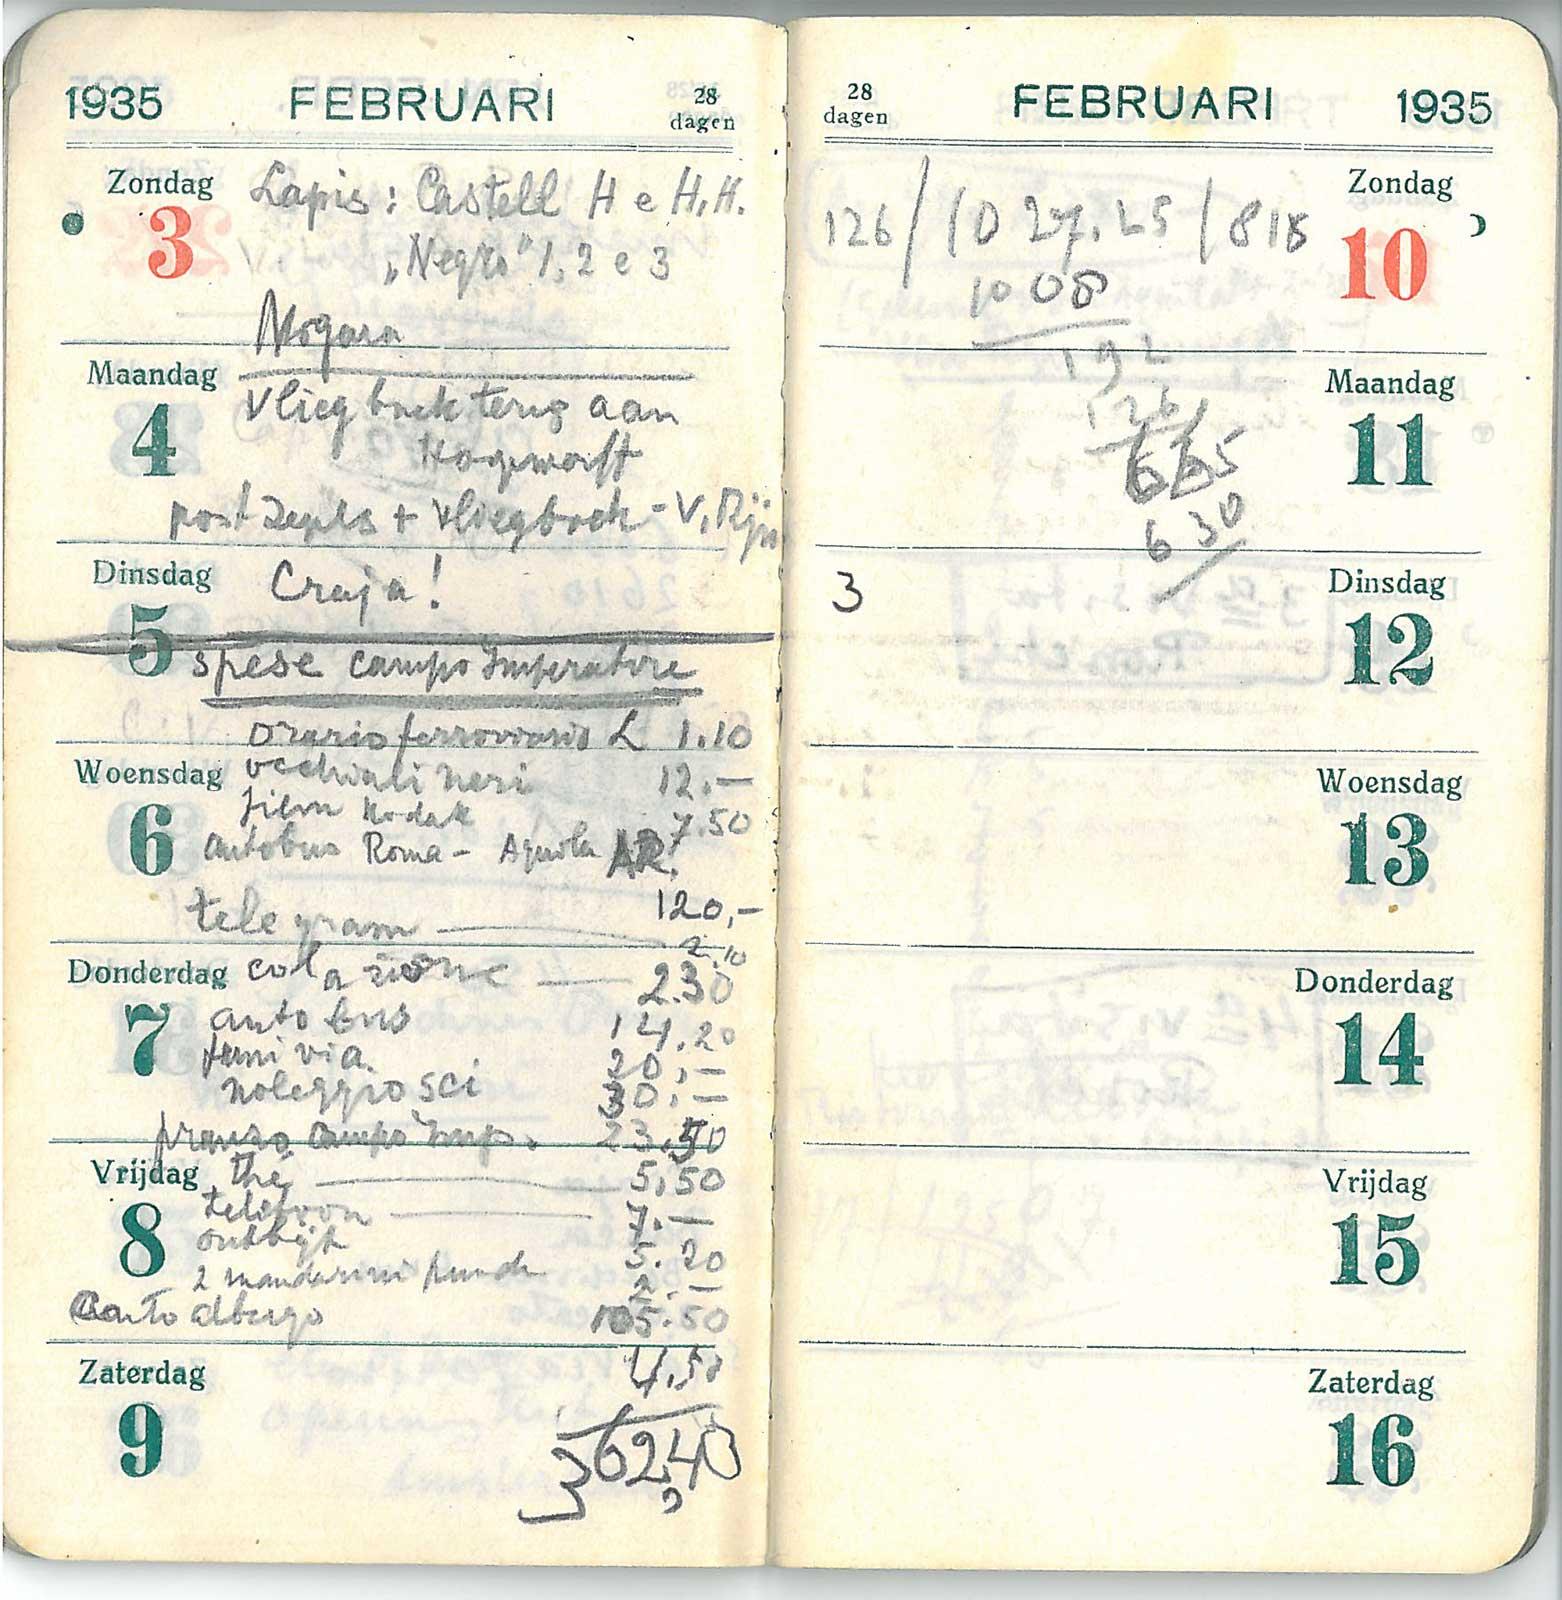 1935 FEBRUARI 28 dagen
Zondag 3
Lapis: Castell H e H.H.
"Negro" 1, 2 e 3
Nogara
Maandag 4
Vliegboek terug aan
Hogewerff
post zepls + vliegboek - V. Rijn
Dinsdag 5
Craja!
spese campo Imperatore
orario ferroviario L 1.10
Woensdag 6
occhiali neri 12.—
film Kodak 7.50
autobus Roma - Aquila AR.
120,—
telegram — 2.10
Donderdag 7
colazione — 2.30
autobus 14.20
funivia 20,—
noleggio sci 30.—
pranzo campo Imp. 23.50
Vrijdag 8
thé — 5,50
telefoon — 7.—
ontbijt 5.20
2 mandarini punch 2.—
Conto albergo 105.50
Zaterdag 9
4.50
362,40
28 dagen FEBRUARI 1935
Zondag 10
126 / 1027.25 / 818
1008
192
Maandag 11
126
665
630
Dinsdag 12
3
Woensdag 13
Donderdag 14
Vrijdag 15
Zaterdag 16